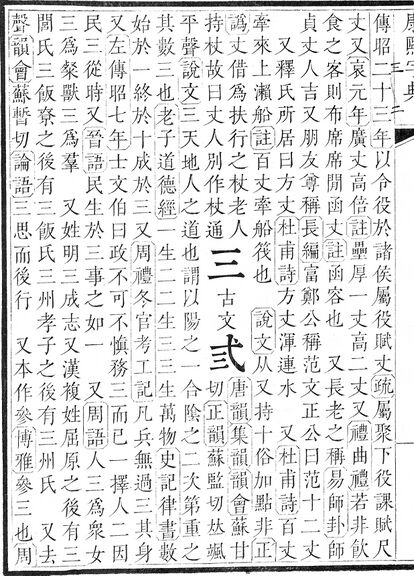 康熙字典
傳昭二十三年以令役於諸侯屬役賦丈疏屬聚下役課賦尺
丈又哀元年廣丈高倍註壘厚一丈高二丈又禮曲禮若非飮
食之客則布席席閒函丈註函容也 又長老之稱易師卦師
貞丈人吉又朋友尊稱長編富鄭公稱范文正公曰范十二丈
又釋氏所居曰方丈杜甫詩方丈渾連水 又杜甫詩百丈
牽來上瀨船註百丈牽船筏也 說文从又持十俗加點非正
譌丈借爲扶行之杖老人
持杖故曰丈人別作杖通
三 古文 弎
唐韻集韻韻會蘇甘
切正韻蘇監切𠀤颯
平聲說文三天地人之道也謂以陽之一合陰之二次第重之
其數三也老子道德經一生二二生三三生萬物史記律書數
始於一終於十成於三又周禮冬官考工記凡兵無過三其身
又左傳昭七年士文伯曰政不可不愼務三而已一擇人二因
民三從時又晉語民生於三事之如一 又周語人三爲衆女
三爲粲獸三爲羣 又姓明三成志又漢複姓屈原之後有三
閭氏三飯尞之後有三飯氏三州孝子之後有三州氏 又去
聲韻會蘇暫切論語三思而後行 又本作參博雅參三也周